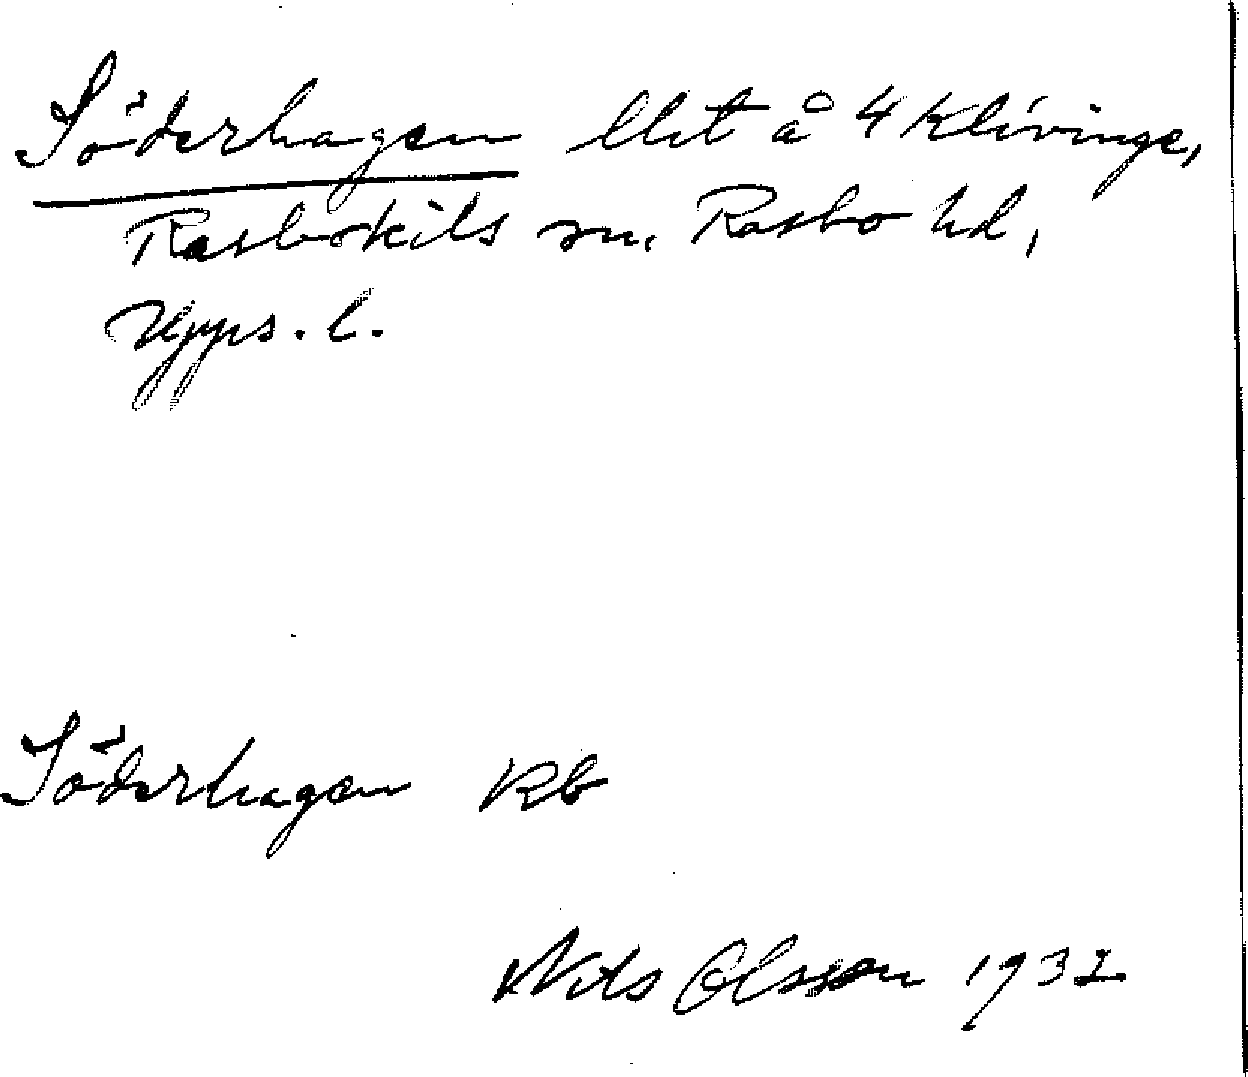 Söderhagen llet å 4 Klivinge,
Rasbokils sn. Rasbo hd,
Upps. l.
Söderhagen Rb
Nils Olsson 1932